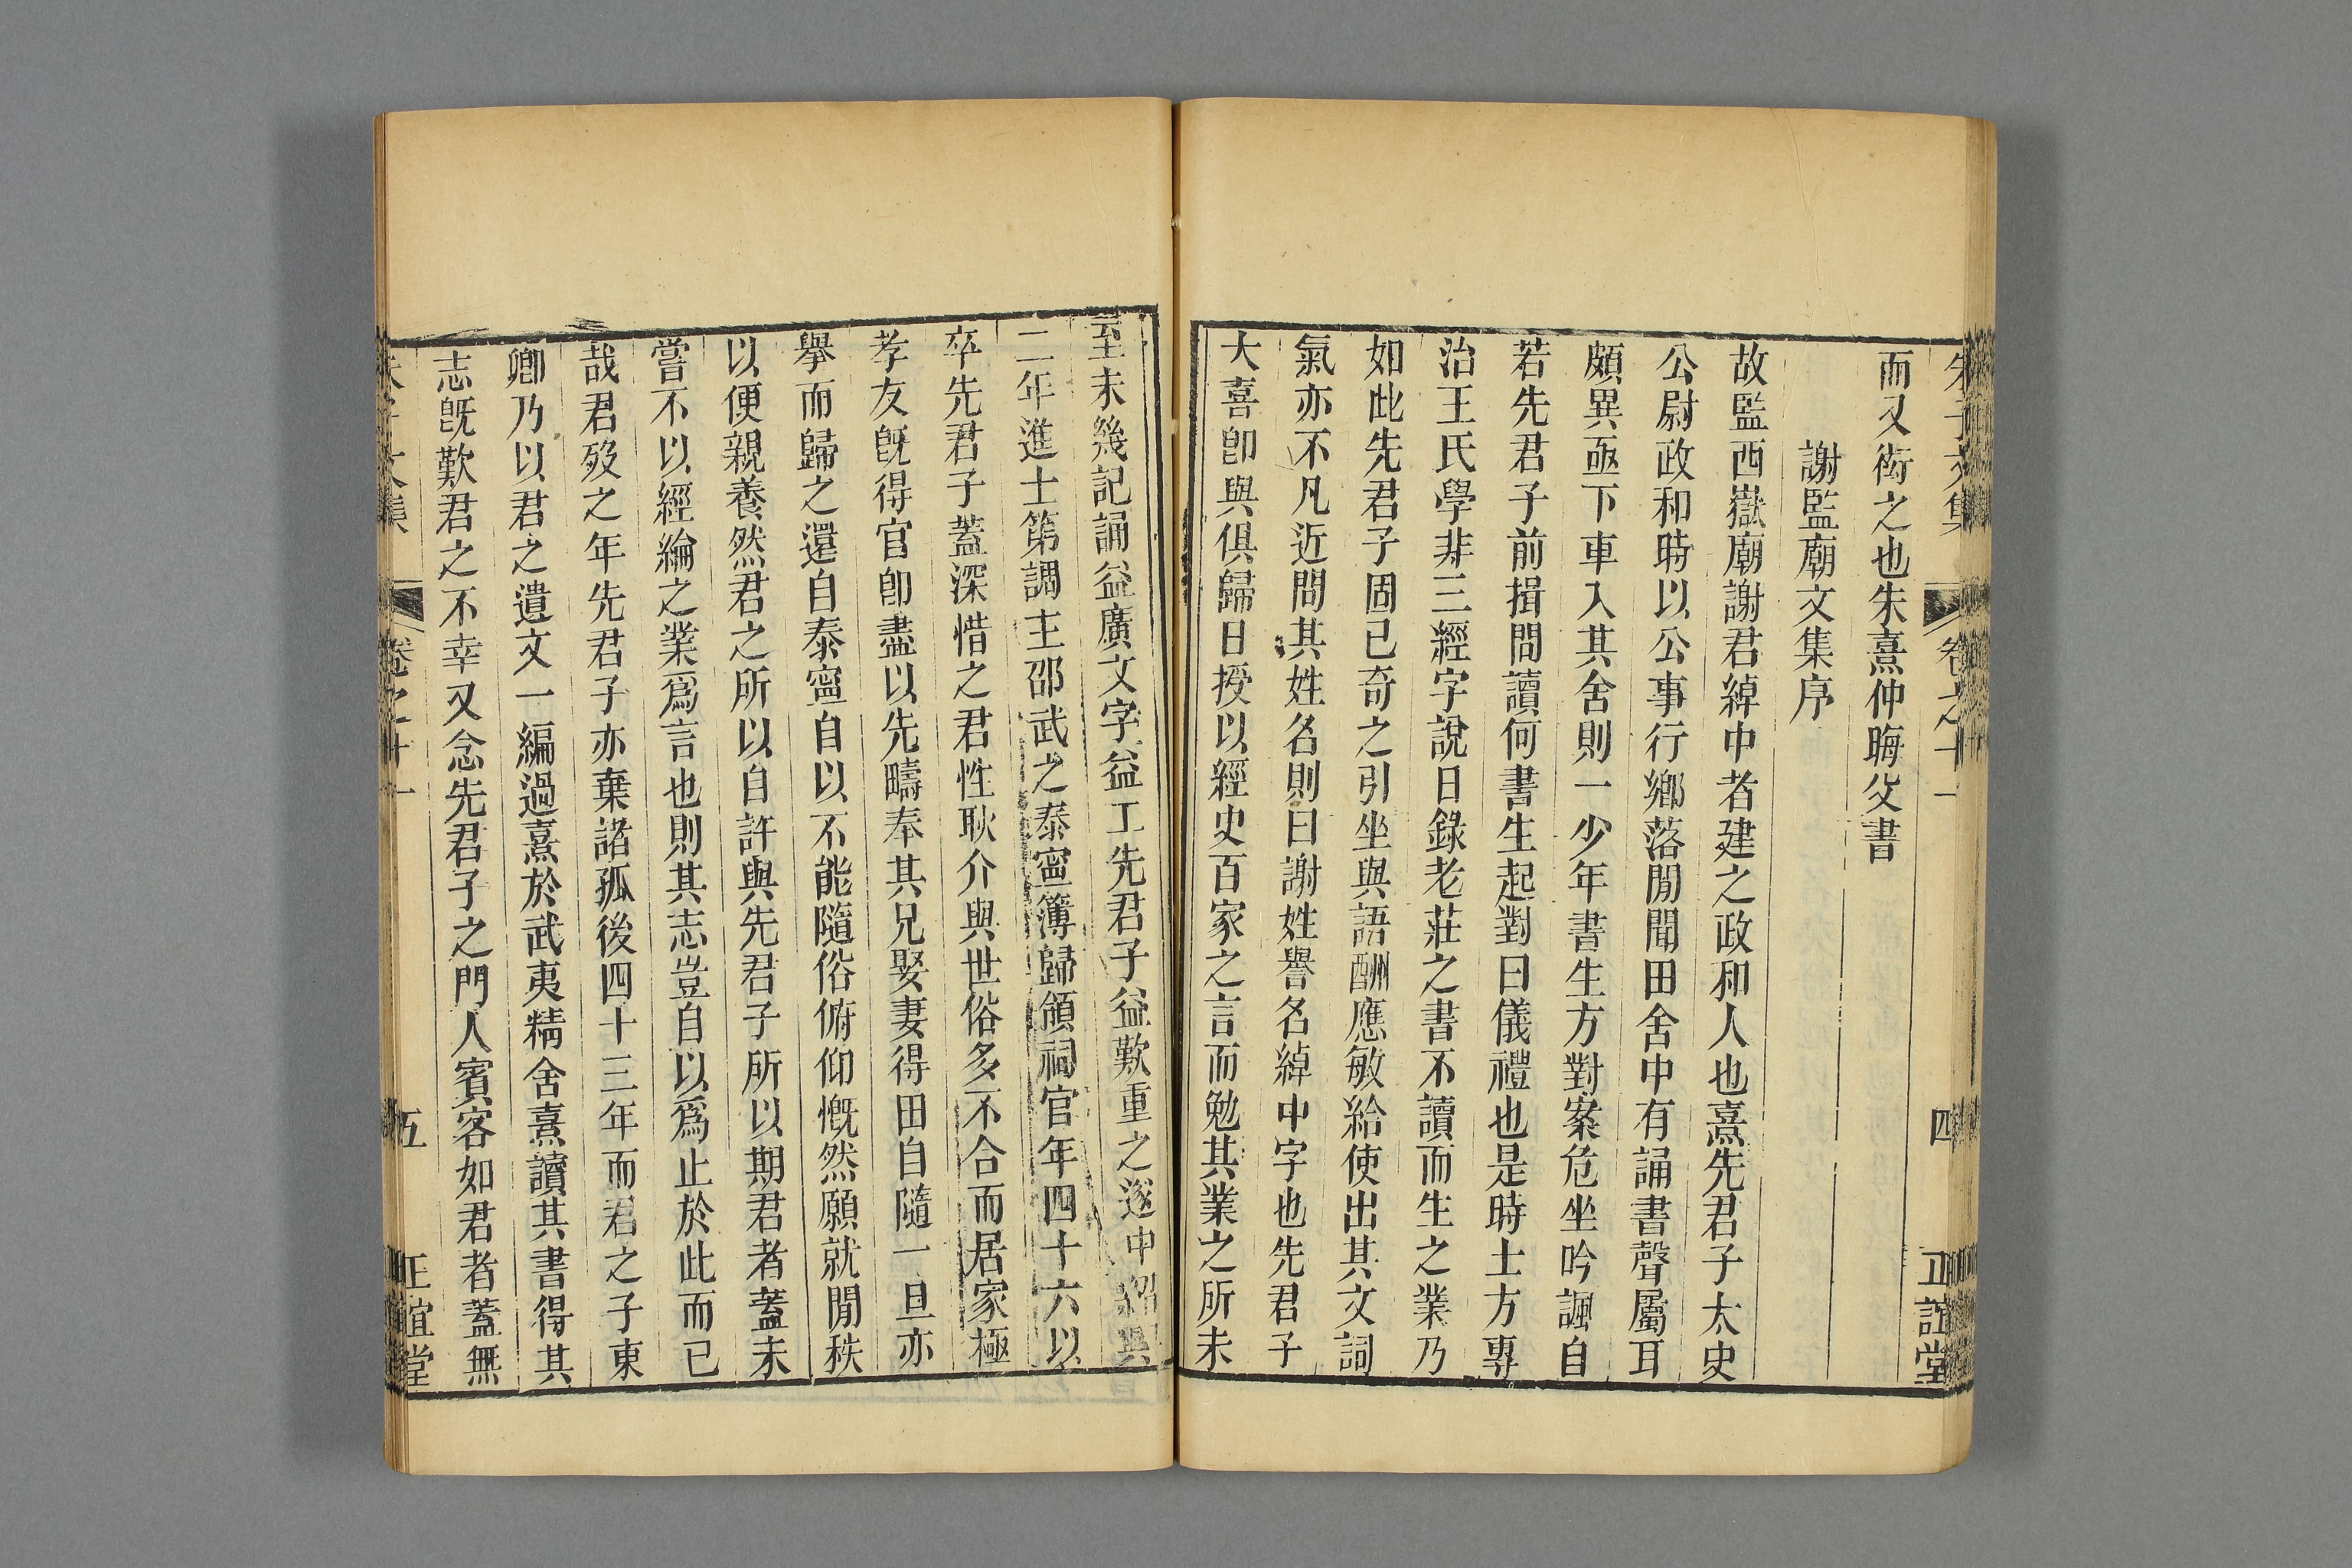 朱子文集 卷之十一 四 正誼堂
而又銜之也朱熹仲晦父書
謝監廟文集序
故監西嶽廟謝君綽中者建之政和人也熹先君子太史
公尉政和時以公事行鄉落閒聞田舍中有誦書聲屬耳
頗異亟下車入其舍則一少年書生方對案危坐吟諷自
若先君子前揖問讀何書生起對曰儀禮也是時士方專
治王氏學非三經字說日錄老莊之書不讀而生之業乃
如此先君子固已奇之引坐與語酬應敏給使出其文詞
氣亦不凡近問其姓名則曰謝姓譽名綽中字也先君子
大喜卽與俱歸日授以經史百家之言而勉其業之所未
至未幾記誦益廣文字益工先君子益歎重之遂中紹興
二年進士第調主邵武之泰寧簿歸領祠官年四十六以
卒先君子蓋深惜之君性耿介與世俗多不合而居家極
孝友旣得官卽盡以先疇奉其兄娶妻得田自隨一旦亦
舉而歸之還自泰寧自以不能隨俗俯仰慨然願就閒秩
以便親養然君之所以自許與先君子所以期君者蓋未
嘗不以經綸之業爲言也則其志豈自以爲止於此而已
哉君歿之年先君子亦棄諸孤後四十三年而君之子東
卿乃以君之遺文一編過熹於武夷精舍熹讀其書得其
志旣歎君之不幸又念先君子之門人賓客如君者蓋無
朱子文集 卷之十一 五 正誼堂